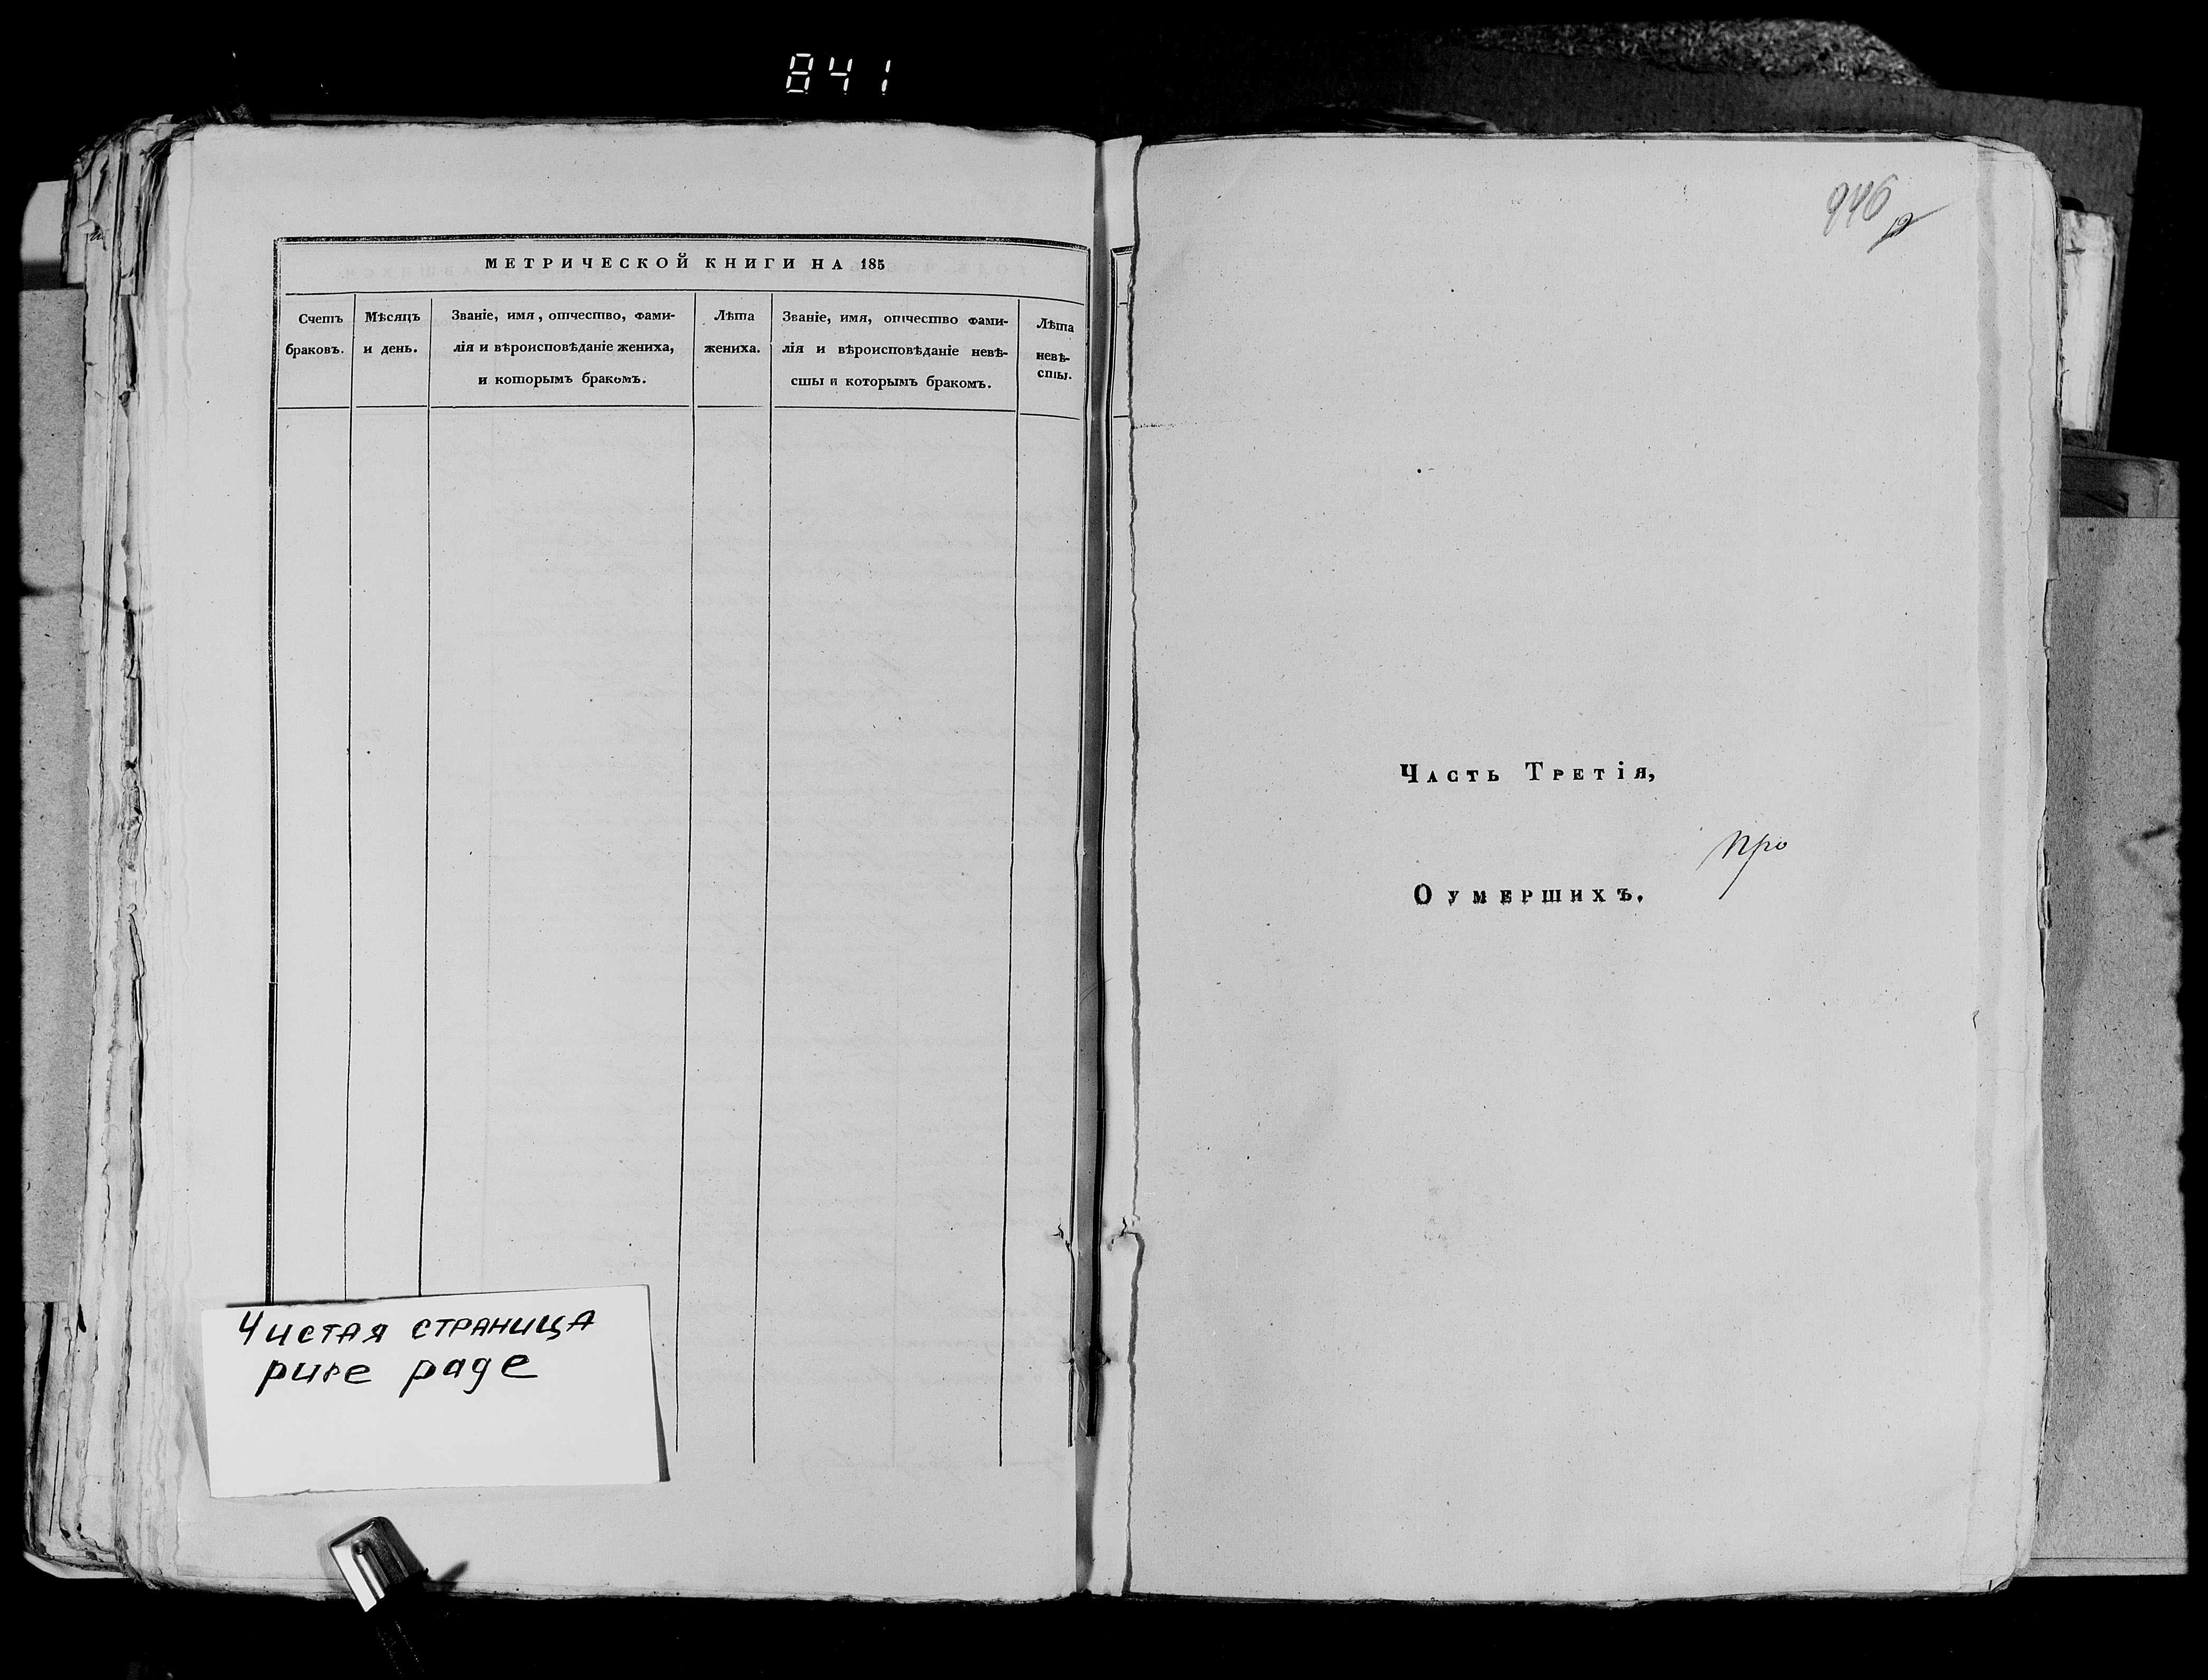 841
МЕТРИЧЕСКОЙ КНИГИ НА 185
Счетъ
браковъ.
Мѣсяцъ
и день.
Званіе, имя, отчество, фами-
лія и вѣроисповѣданіе жениха,
и которымъ бракомъ.
Лѣта
жениха.
Званіе, имя, отчество фами-
лія и вѣроисповѣданіе невѣ-
сты и которымъ бракомъ.
Лѣта
невѣ-
сты.
Чистая страница
pure page
946
Часть Третія,
Про
О умершихъ.